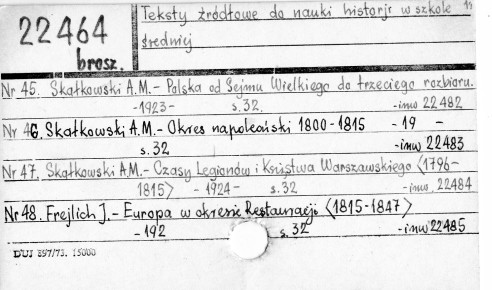 22464
brosz.
Teksty źródłowe do nauki historji w szkole
średniej
Nr 45. Skałkowski A.M. - Polska od Sejmu Wielkiego do trzeciego rozbioru.
-1923- s.32. -inw 22482
Nr 46. Skałkowski A.M. - Okres napoleoński 1800-1815 - 19 -
s.32 -inw 22483
Nr 47. Skałkowski A.M. - Czasy Legionów i Księstwa Warszawskiego <1796-
1815> - 1924 - s.32 -inw. 22484
Nr 48. Frejlich J. - Europa w okresie Restauracji <1815-1847>
-192 s.32 -inw 22485
DUJ 897/73. 15000